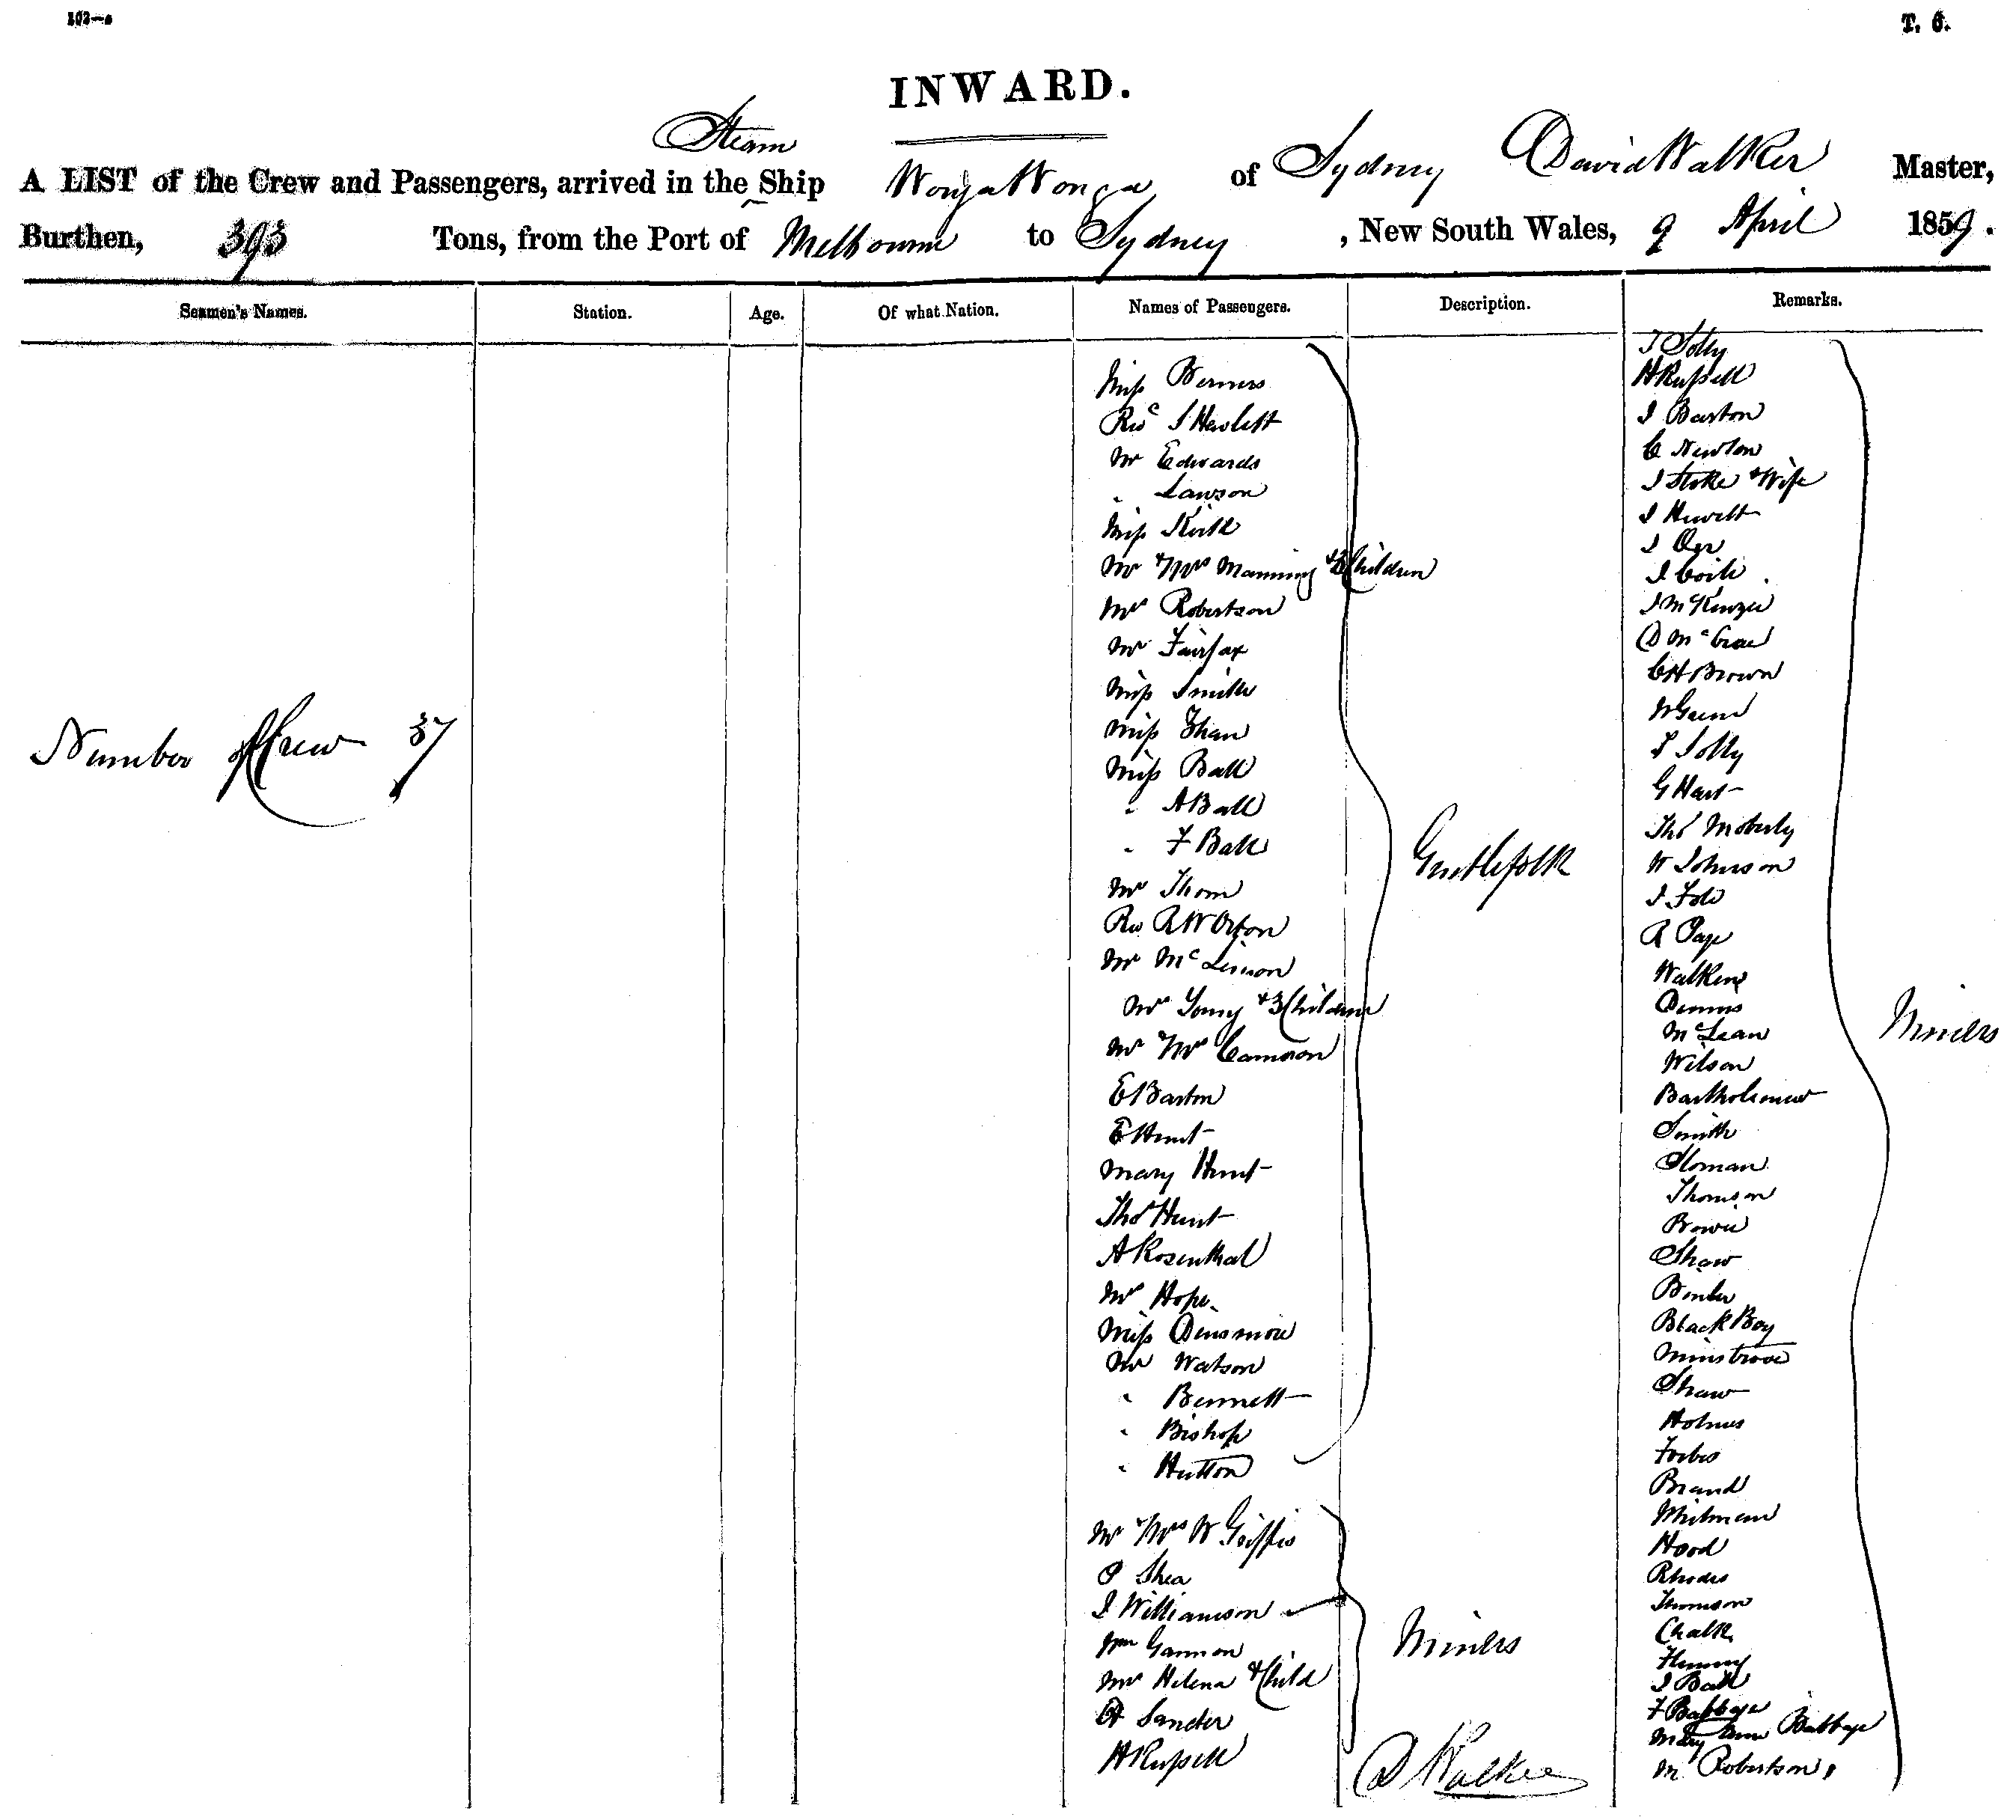 T. 6.
INWARD.
Steam
A LIST of the Crew and Passengers, arrived in the Ship Wonga Wonga of Sydney David Walker Master,
Burthen, 393 Tons, from the Port of Melbourne to Sydney, New South Wales, 9 April 1859.
Seamen's Names. Station. Age. Of what Nation. Names of Passengers. Description. Remarks.
Number of Crew 37
Miss Berners
Revd J Hewlett
Mr Edwards
" Lawson
Miss Keith
Mr & Mrs Manning & 3 Children
Mrs Robertson
Mr Fairfax
Miss Smith
Miss
Miss Ball
" A Ball
" F Ball
Mr Thom
Rev R W Orton
Mr Mc
Mrs Young & 3 Children
Mr & Mrs Cameron
E Barton
E Hunt
Mary Hunt
Thos Hunt
A Rosenthal
Mr Hope
Miss Densmore
Mr Watson
" Bennett
" Bishop
" Hutton
Gentlefolk
Mr & Mrs W Griffis
P Shea
J Williamson
Wm Gannon
Mrs Helena & Child
Sander
H Russell
Miners
D Walker
J Solly
H Russell
J Barton
C Newton
J Stoke & Wife
J Hewett
J Orr
J
J McKenzie
D McCrae
C H Brown
W
J Jolly
G Hart
Thos Moberly
W Johnson
J
R Page
Walker
Dennis
McLean
Wilson
Bartholomew
Smith
Sloman
Thomson
Bowie
Shaw
Black Boy
Shaw
Holmes
Forbes
Brand
Whitman
Hood
Rhodes
Thomson
Chalk
Fleming
J Ball
F Babbage
Mary Ann Babbage
M Robertson
Miners